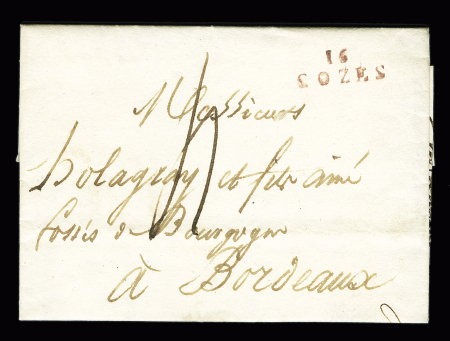 16
COZES
Messieurs
et fils aîné
fossés de Bourgogne
à Bordeaux